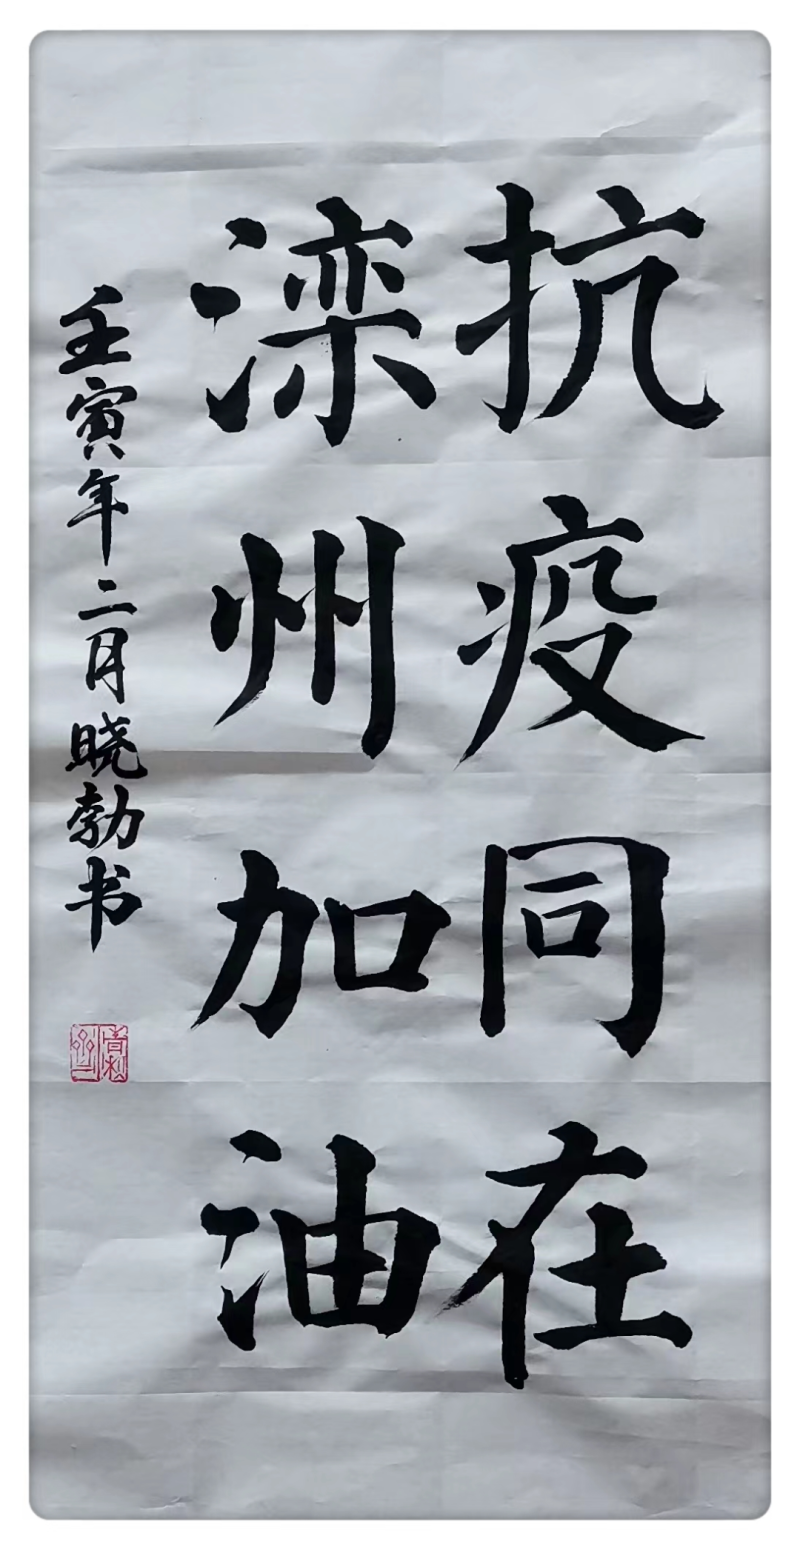 抗疫同在
滦州加油
壬寅年二月晓勃书